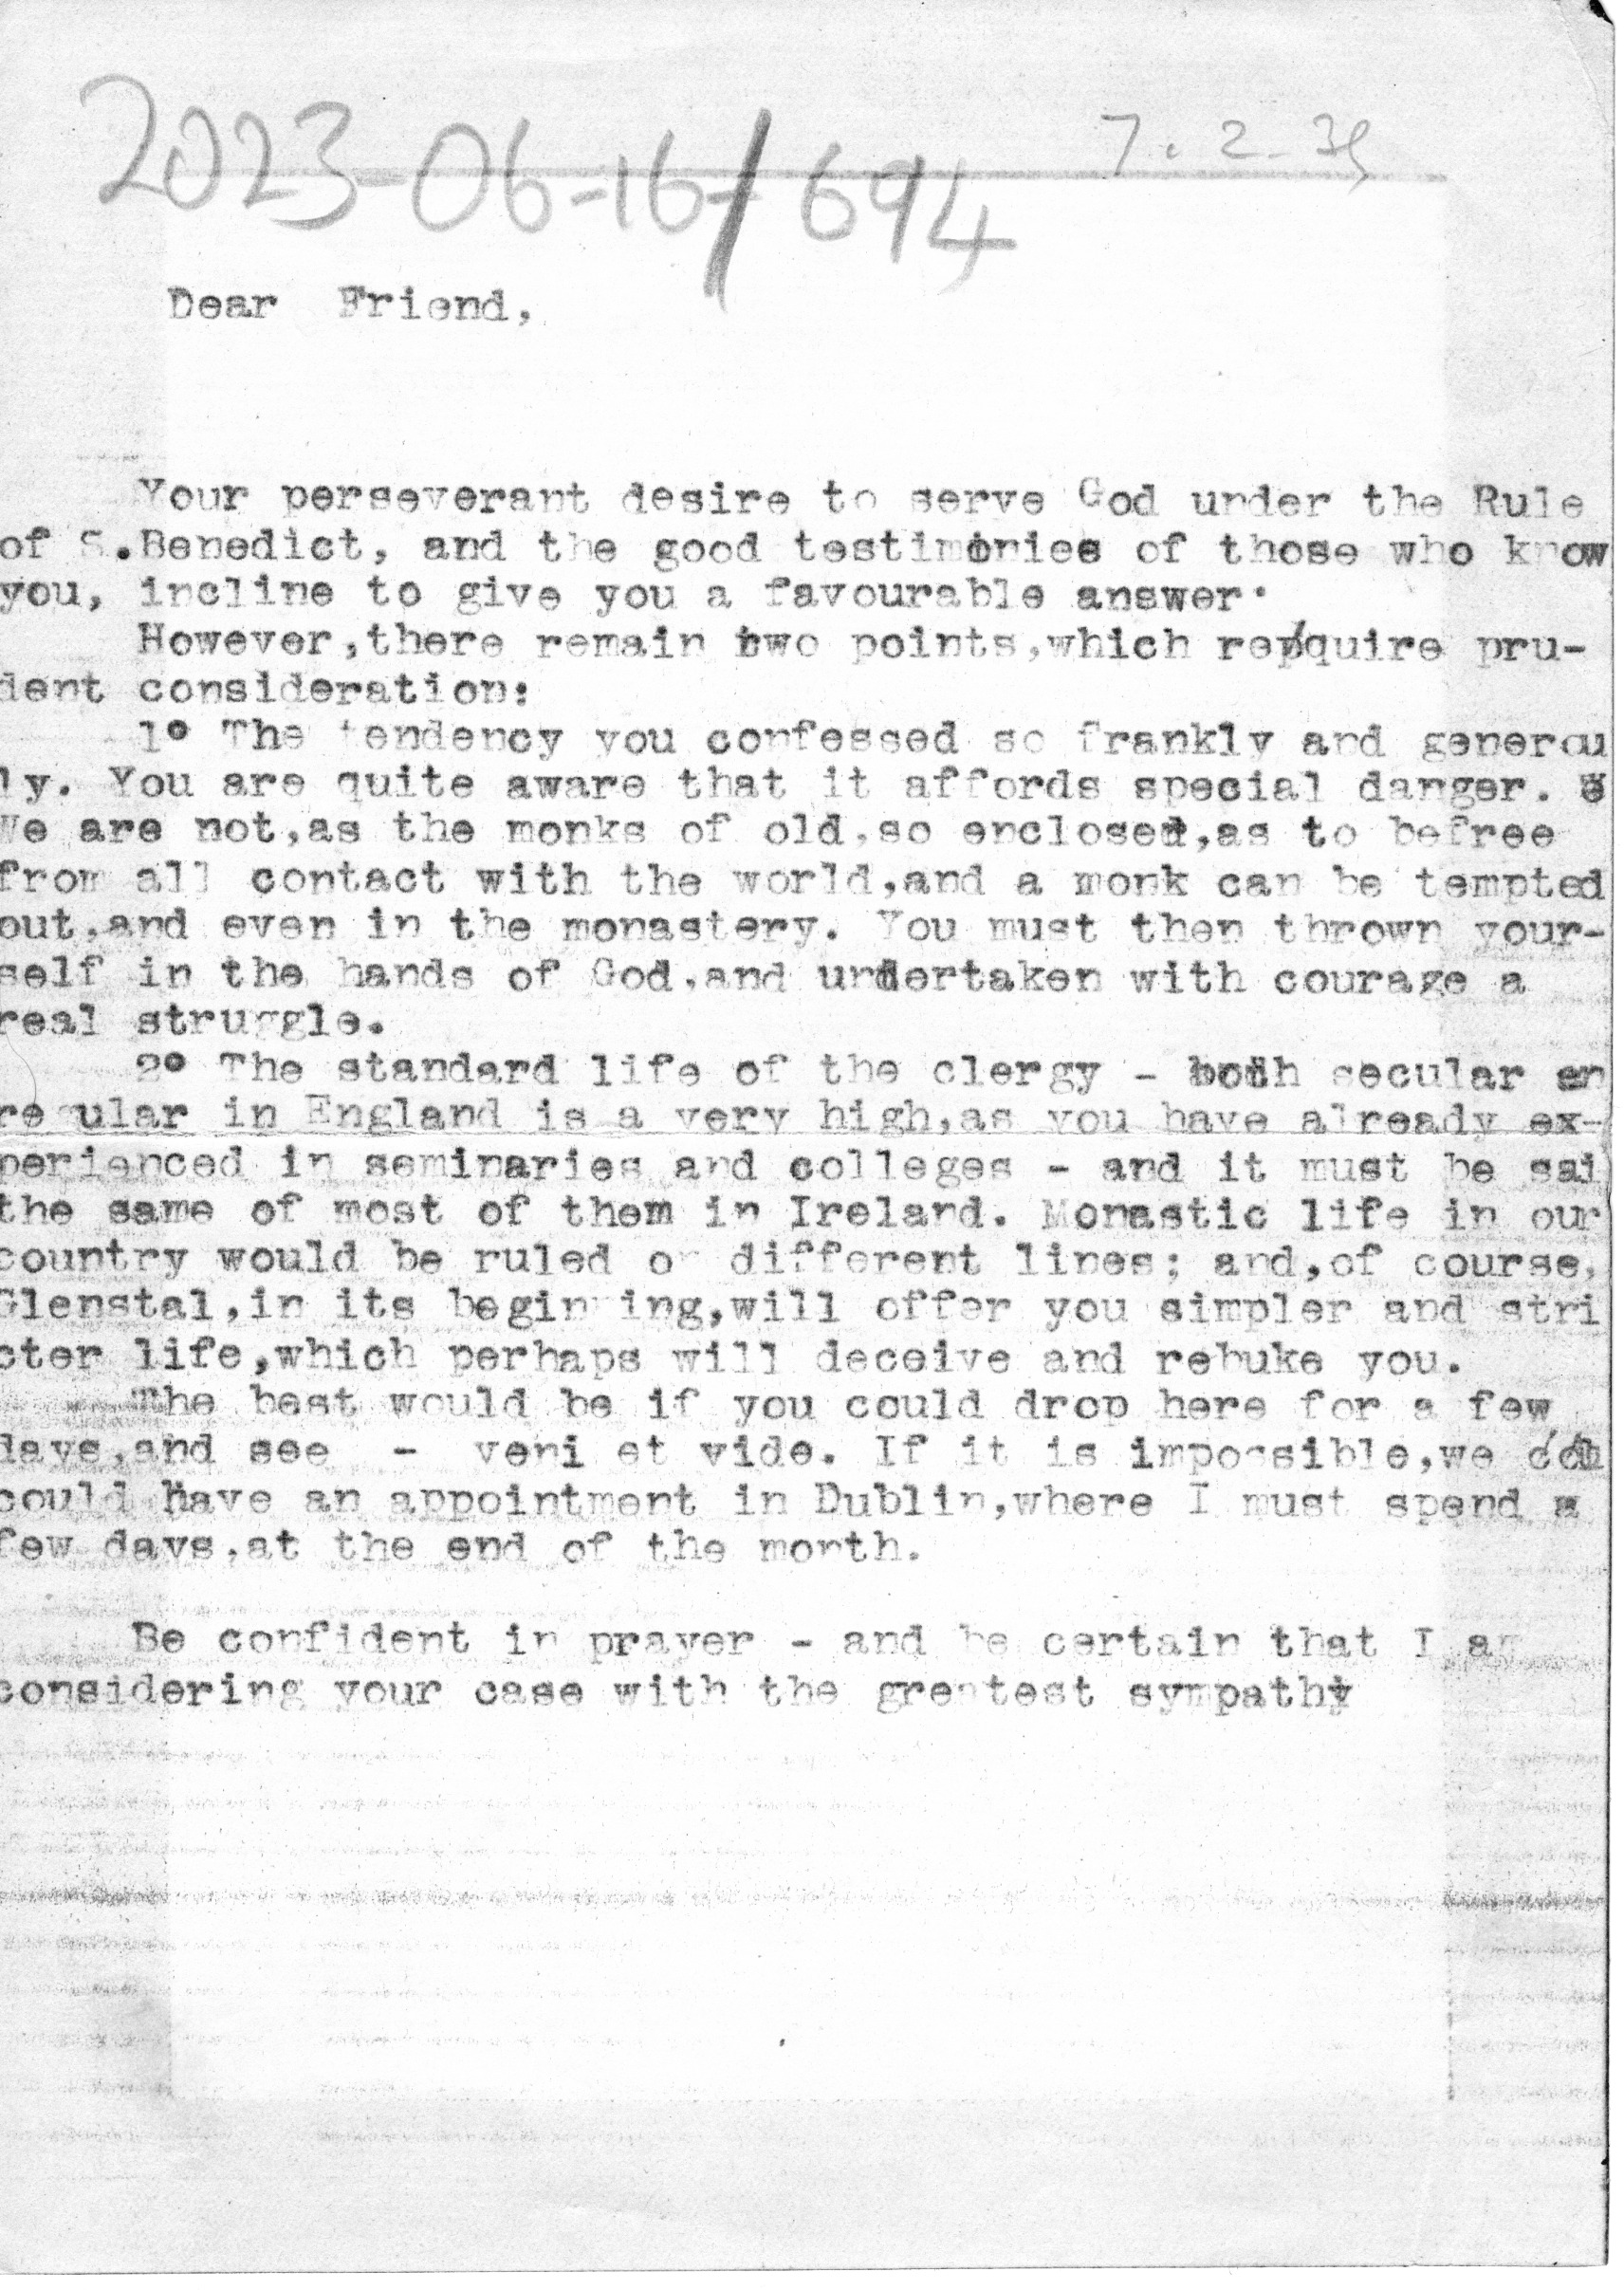 2023-06-16/694
7.2.35
Dear Friend,
Your perseverant desire to serve God under the Rule
of S.Benedict, and the good testimonies of those who know
you, incline to give you a favourable answer.
However,there remain two points,which require pru-
dent consideration:
1° The tendency you confessed so frankly and generou
ly. You are quite aware that it affords special danger.
We are not,as the monks of old,so enclosed,as to befree
from all contact with the world,and a monk can be tempted
out,and even in the monastery. You must then thrown your-
self in the hands of God,and undertaken with courage a
real struggle.
2° The standard life of the clergy - both secular an
regular in England is a very high,as you have already ex-
perienced in seminaries and colleges - and it must be sai
the same of most of them in Ireland. Monastic life in our
country would be ruled on different lines; and,of course,
Glenstal,in its beginning,will offer you simpler and stri
cter life,which perhaps will deceive and rebuke you.
The best would be if you could drop here for a few
days,and see - veni et vide. If it is impossible,we
could have an appointment in Dublin,where I must spend a
few days,at the end of the month.
Be confident in prayer - and be certain that I am
considering your case with the greatest sympathy